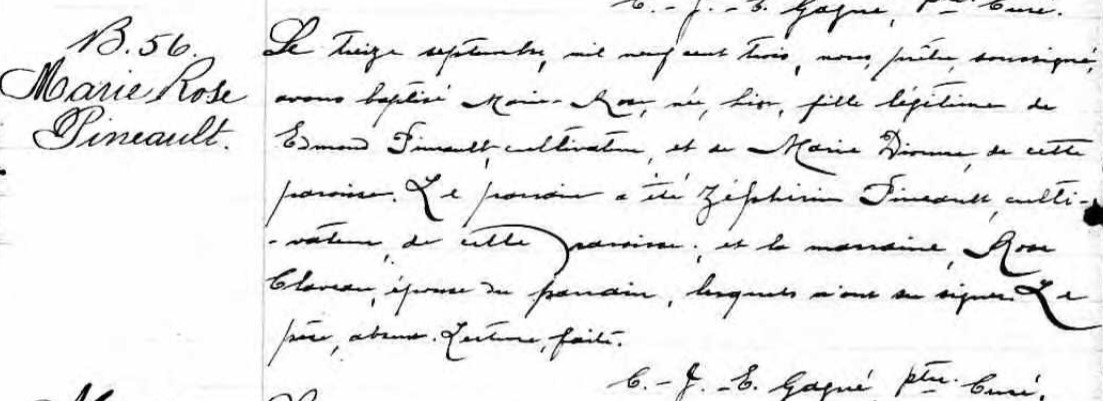 C.-J.-E. Gagné, Ptre Curé.
B. 56.
Marie Rose
Pineault.
Le treize septembre, mil neuf cent trois, nous, prêtre, soussigné,
avons baptisé Marie-Rose, née, hier, fille légitime de
Edmond Pineault, cultivateur, et de Marie Dionne, de cette
paroisse. Le parrain a été Zéphirin Pineault, culti-
-vateur, de cette paroisse; et la marraine, Rose
Claveau, épouse du parrain, lesquels n'ont su signer. Le
père, absent. Lecture, faite.
C.-J.-E. Gagné, ptre. Curé.